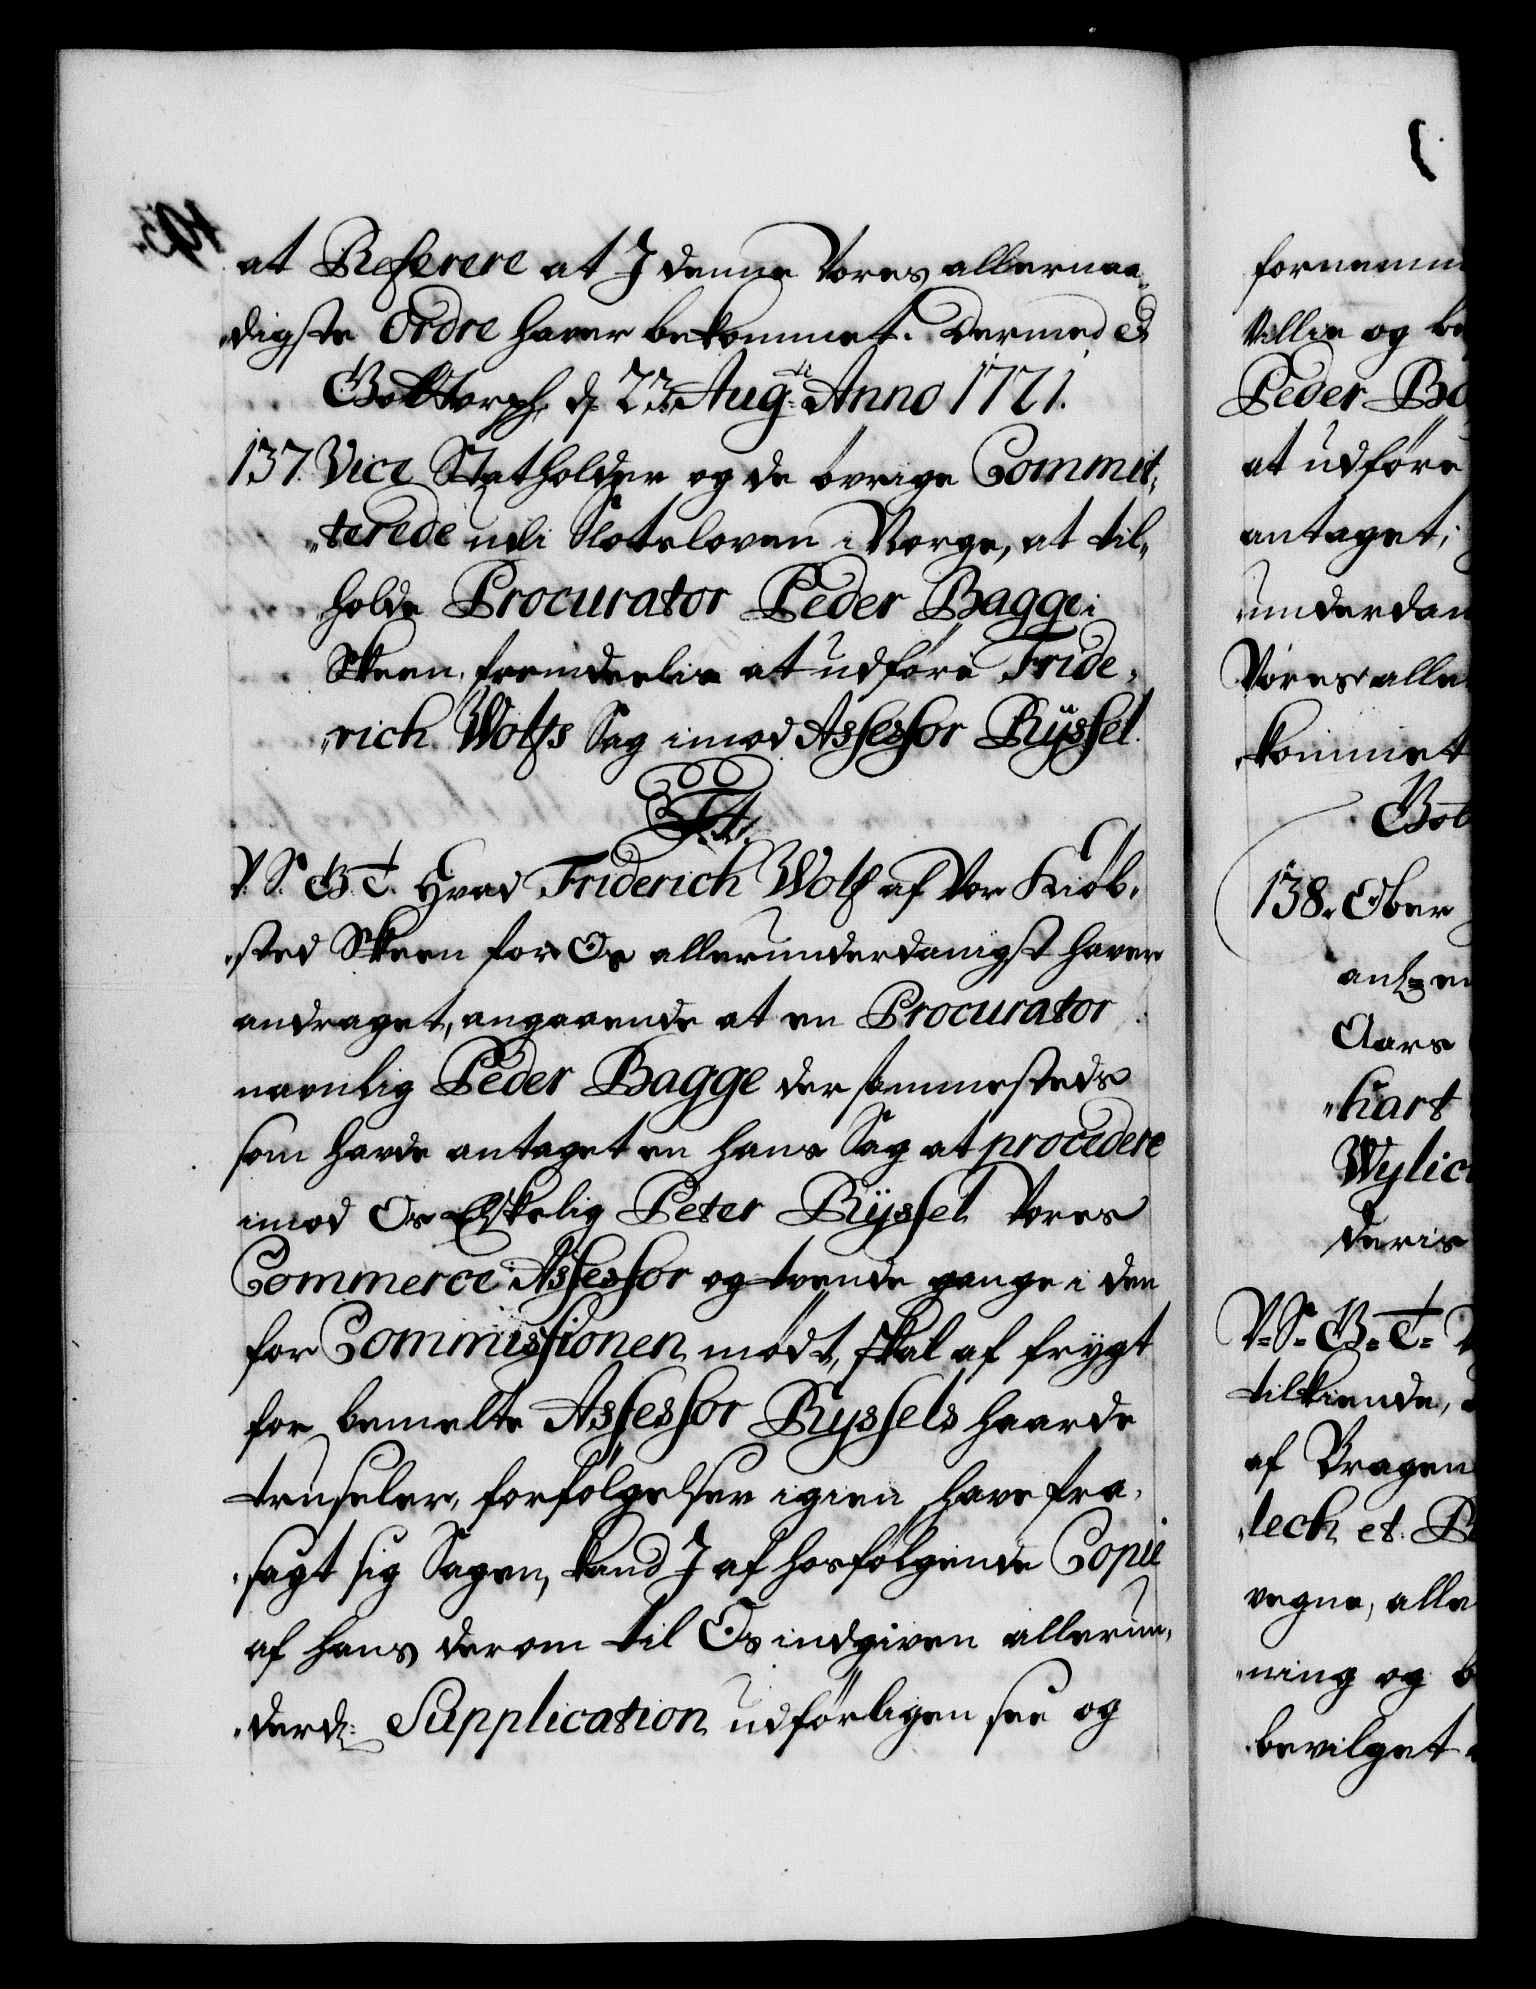 at Referere at I denne Vores allernaa-
digste Ordre haver bekommet. Dermed &
Gottorph, d. 23. Augti Anno 1721.
137. Vice Statholder og de øvrige Commit-
terede udi Slotsloven i Norge, at til-
holde Procurator Peder Bagge i
Skeen, fremdeelis at udføre Fride-
rich Wolfs Sag imod Assessor Rÿssel.
F. 4.
V. S. G. T. Hvad Friderich Wolf af Vor Kiøb-
sted Skeen for Os allerunderdanigst haver
andraget, angaaende at en Procurator
navnlig Peder Bagge der sammesteds
som havde antaget en hans Sag at procedere
imod Os Elskelig Peter Rÿssel Vores
Commerce Assessor og tvende gange i den
for Commissionen mødt, skal af frygt
for bemelte Assessor Ryssels haarde
truseler, forfølgelser igien have fra-
sagt sig Sagen, kand I af hosfølgende Copie
af hans derom til Os indgiven allerun-
derd. Supplication udførligen see og
fornemm
Villie og be
Peder Ba
at udføre
antaget,
underdan
Vores alle
kommet
Got
138. Ober
anl en
Aars
hart
Wylic
deris
V. S. G. T.
tilkiende,
af Bragen
lech et. P
vegne, alle
ning og b
bevilget